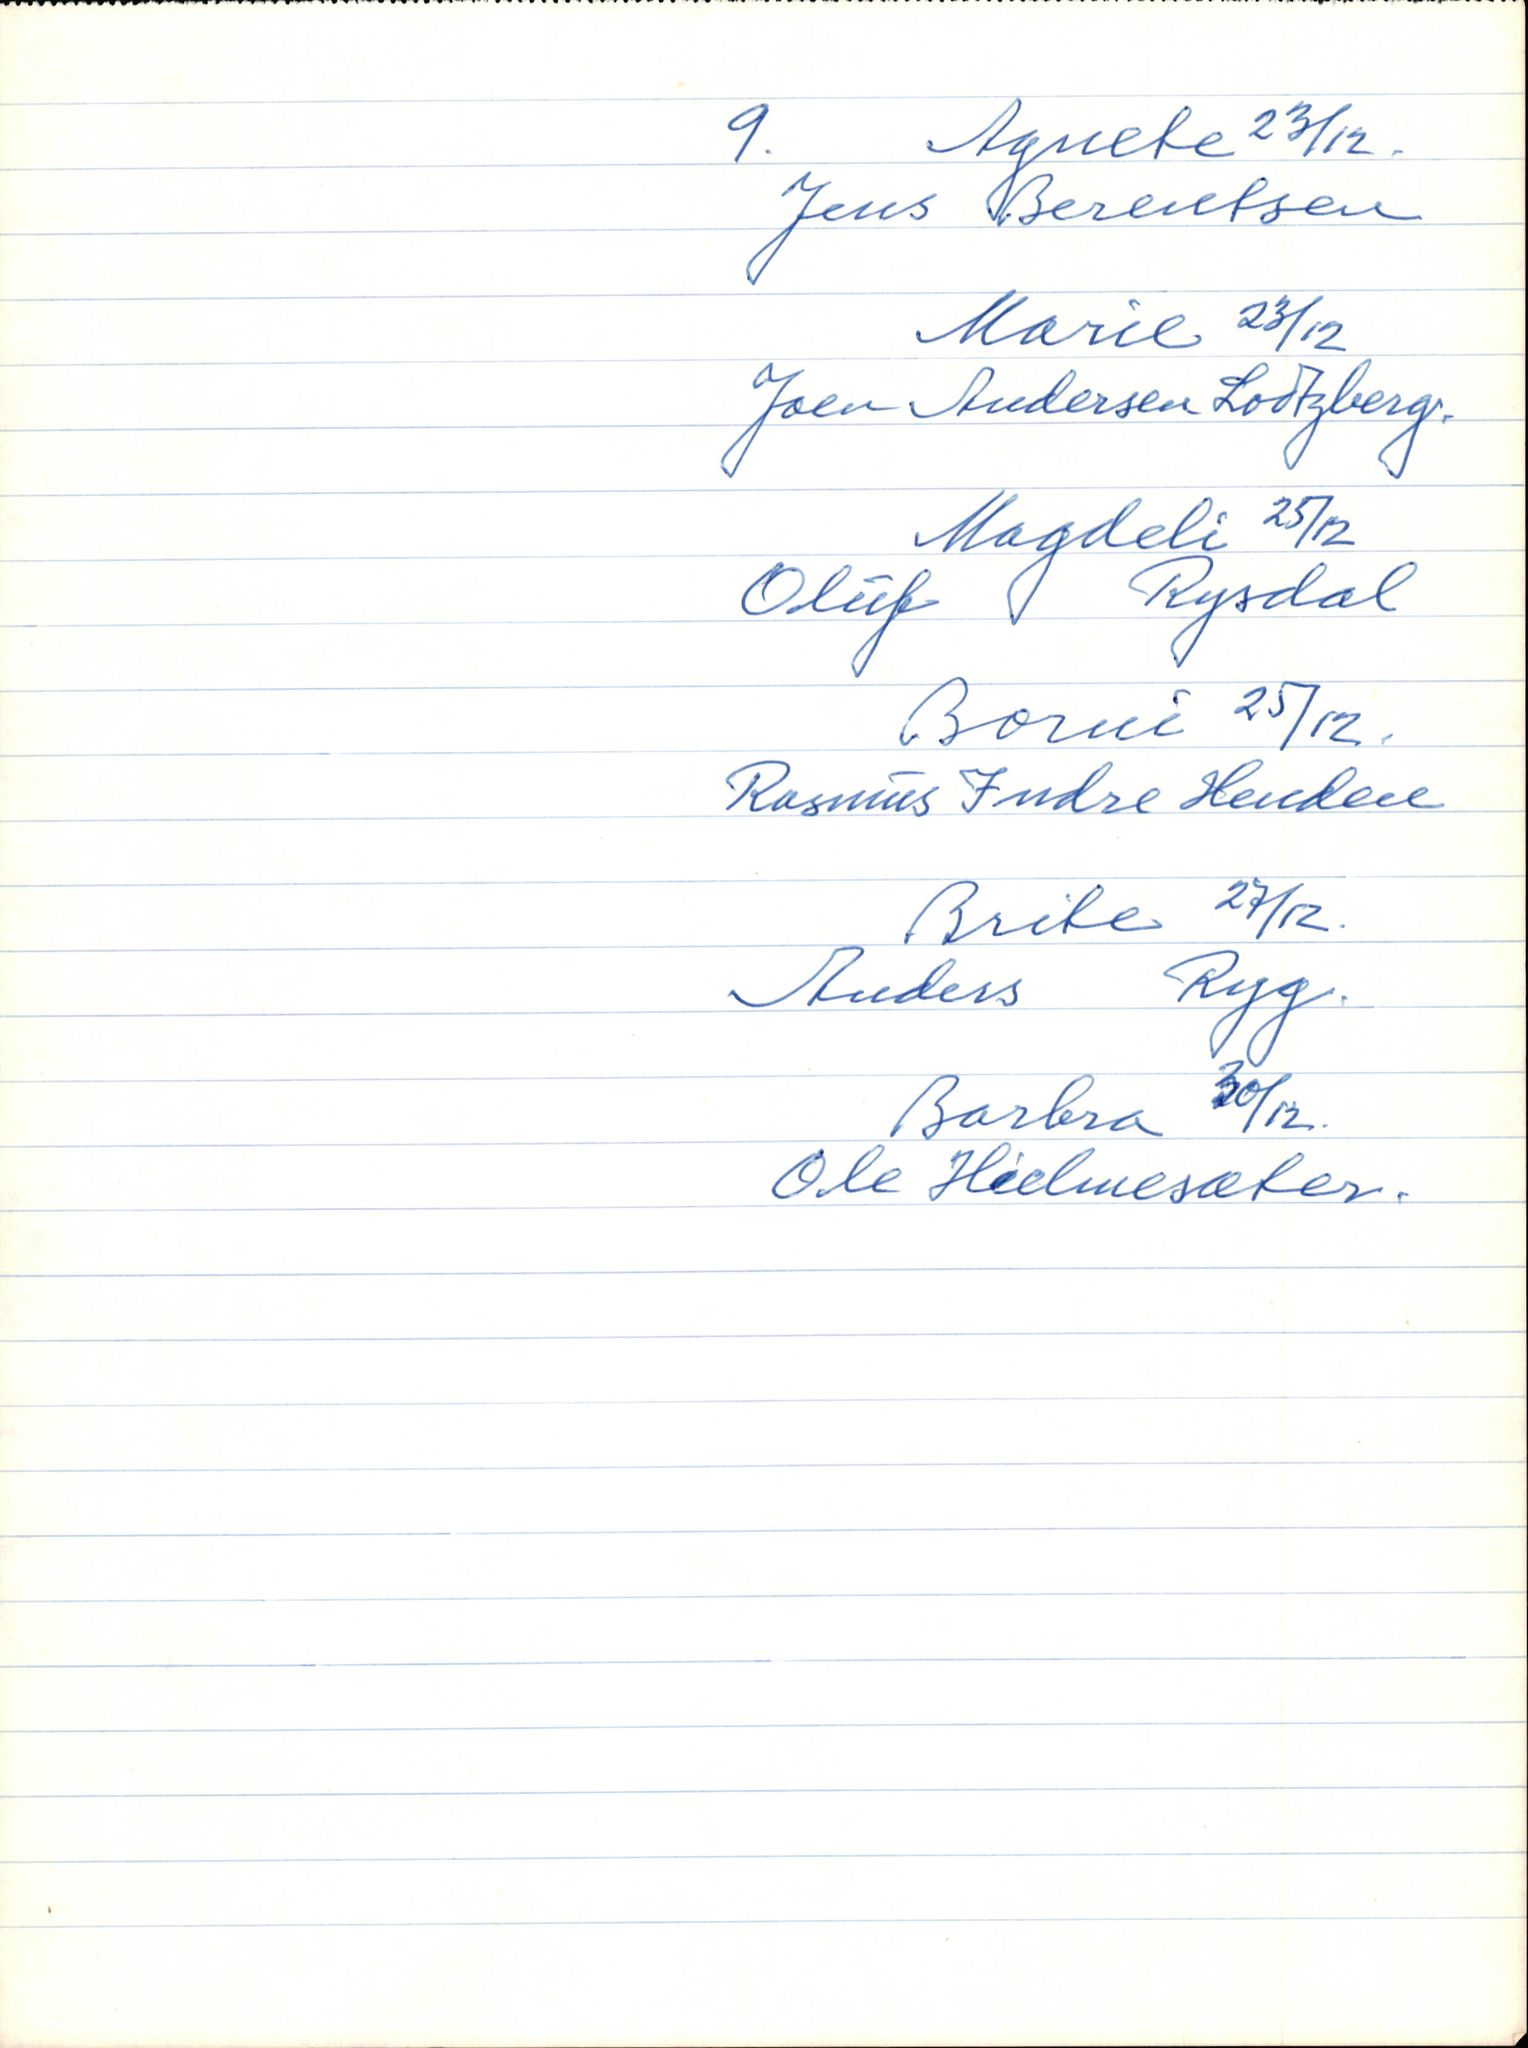 9. Agnete 23/12.
Jens Berentsen
Marie 23/12
Joen Andersen Lootzberg.
Magdeli 25/12
Oluf Rysdal
Borni 25/12.
Rasmus Indre Henden
Brite 27/12.
Anders Ryg.
Barbra 30/12.
Ole Hielmesæter.